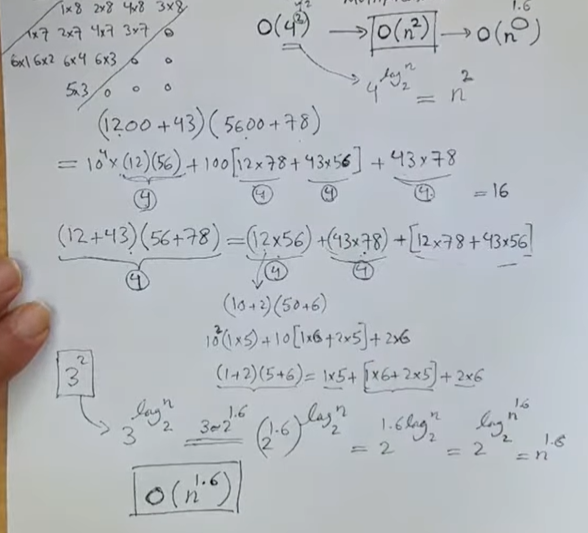 1×8 2×8 4×8 3×8
1×7 2×7 4×7 3×7 0
6×1 6×2 6×4 6×3 0 0
5×3 0 0 0
O(4²) → O(n²) → O(n^1.6)
4^log₂n = n²
(1200+43)(5600+78)
= 10⁴×(12)(56) + 100[12×78 + 43×56] + 43×78
4 4 4 4 = 16
(12+43)(56+78) = (12×56) + (43×78) + [12×78 + 43×56]
4 4 4
(10+2)(50+6)
10²(1×5) + 10[1×6+2×5] + 2×6
(1+2)(5+6) = 1×5 + [1×6+2×5] + 2×6
3²
3^log₂n 3≈2^1.6 (2^1.6)^log₂n = 2^1.6log₂n = 2^log₂n^1.6 = n^1.6
O(n^1.6)